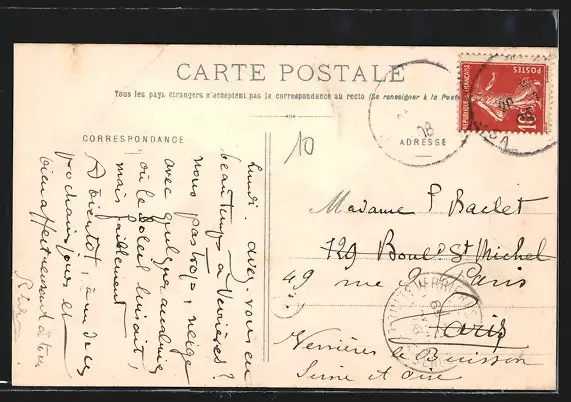 CARTE POSTALE
Tous les pays étrangers n'acceptent pas la correspondance au recto (Se renseigner à la Poste
CORRESPONDANCE
ADRESSE
10
POSTES
REPUBLIQUE FRANÇAISE
10
08
Lundi. avez vous eu
beau temps à Verrières?
nous pas trop, neige
avec quelques
où le soleil luisait,
mais faiblement
A bientôt,
prochains jours et
bien affectueusement à tous
Madame P Baclet
129 Boul. St Michel
49 rue de Paris
Paris
Verrières
le Buisson
Seine et Oise